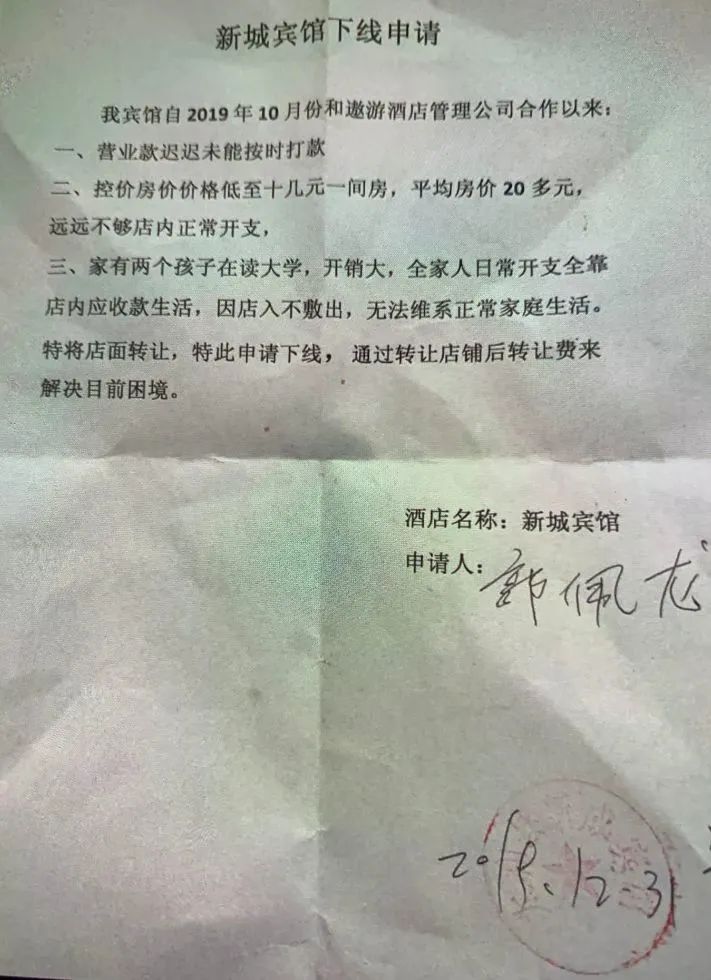 新城宾馆下线申请
我宾馆自 2019 年 10 月份和遨游酒店管理公司合作以来：
一、营业款迟迟未能按时打款
二、控价房价价格低至十几元一间房，平均房价 20 多元，
远远不够店内正常开支，
三、家有两个孩子在读大学，开销大，全家人日常开支全靠
店内应收款生活，因店入不敷出，无法维系正常家庭生活。
特将店面转让，特此申请下线，通过转让店铺后转让费来
解决目前困境。
酒店名称：新城宾馆
申请人：郭佩龙
2019.12.31